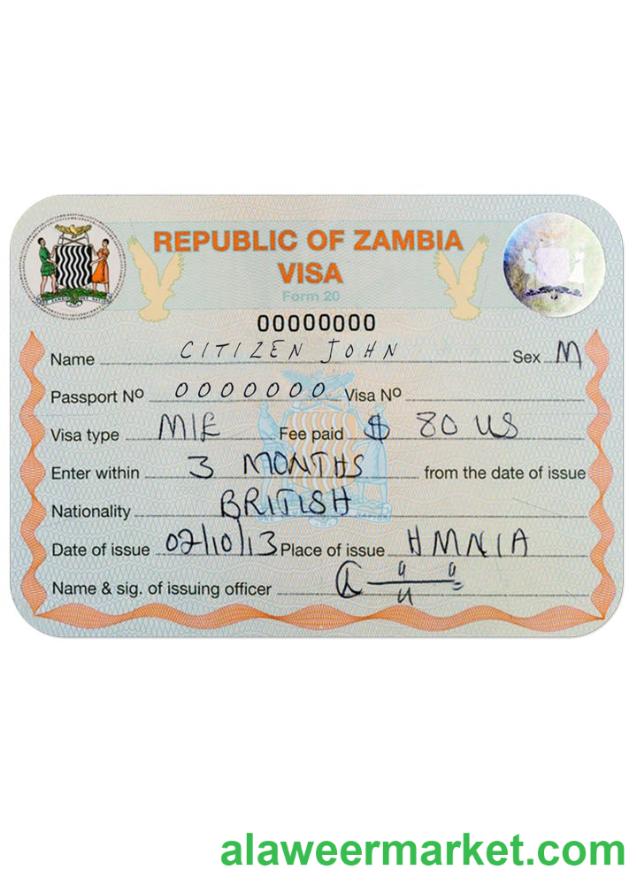 REPUBLIC OF ZAMBIA
VISA
Form 20
00000000
Name CITIZEN JOHN Sex M
Passport Nº 0000000 Visa Nº
Visa type MIE Fee paid $ 80 US
Enter within 3 MONTHS from the date of issue
Nationality BRITISH
Date of issue 02/10/13 Place of issue HMNIA
Name & sig. of issuing officer
alaweermarket.com